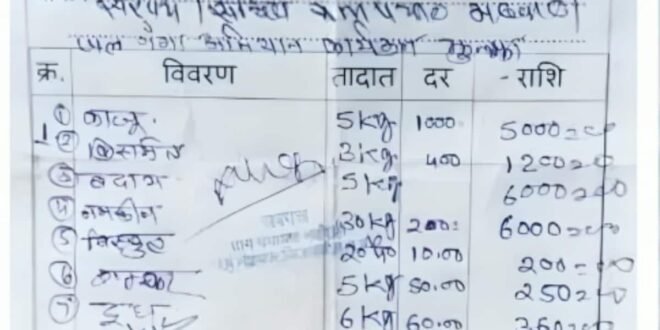 सरपंच / सचिव ग्राम पंचायत भदवाही
जल गंगा अभियान कार्यक्रम
क्र. विवरण तादात दर - राशि
① काजू. 5 kg 1000 5000=00
1
② किसमिस 3 kg 400 1200=00
③ बदाम 5 kg 6000=00
④ नमकीन 30 kg 200= 6000=00
⑤ बिस्कुट 20 10.00 200=00
⑥ 5 kg 50.00 250=00
⑦ दूध 6 kg 60.00 360=00